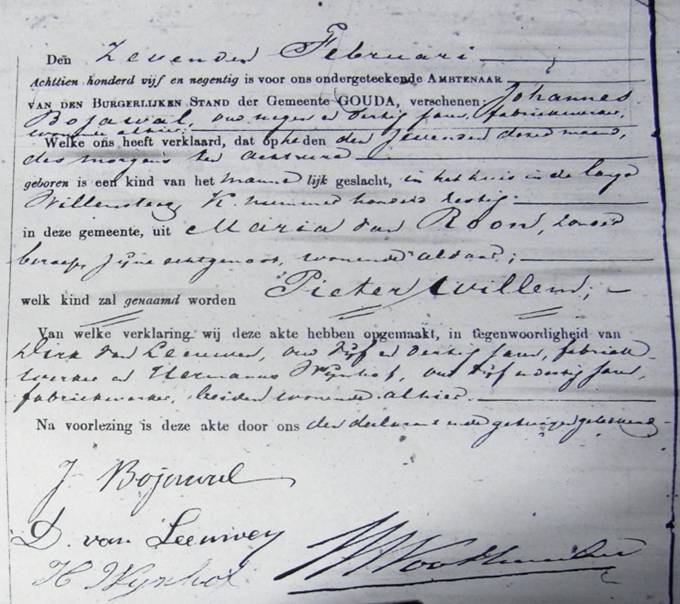 Den Zevenden Februari
Achttien honderd vijf en negentig is voor ons ondergeteekende AMBTENAAR
VAN DEN BURGERLIJKEN STAND der Gemeente GOUDA, verschenen: Johannes
Bojawal, oud negen en dertig jaren, fabriekwerker,
wonende alhier;
Welke ons heeft verklaard, dat op heden den zevenden dezer maand,
des morgens ten acht ure
geboren is een kind van het mannelijk geslacht, in het huis in de lage
Willensteeg K. nummer honderd zestig.
in deze gemeente, uit Maria van Roon, zonder
beroep, zijne echtgenoot, wonende aldaar;
welk kind zal genaamd worden Pieter Willem;
Van welke verklaring wij deze akte hebben opgemaakt, in tegenwoordigheid van
Dirk van Leeuwen, oud vijf en dertig jaren, fabriek-
werker en Hermanus Wijnhof, oud vijf en dertig jaren,
fabriekwerker, beiden wonende alhier.
Na voorlezing is deze akte door ons den declarant en de getuigen geteekend.
J Bojawal
D. van Leeuwen
H Wijnhof